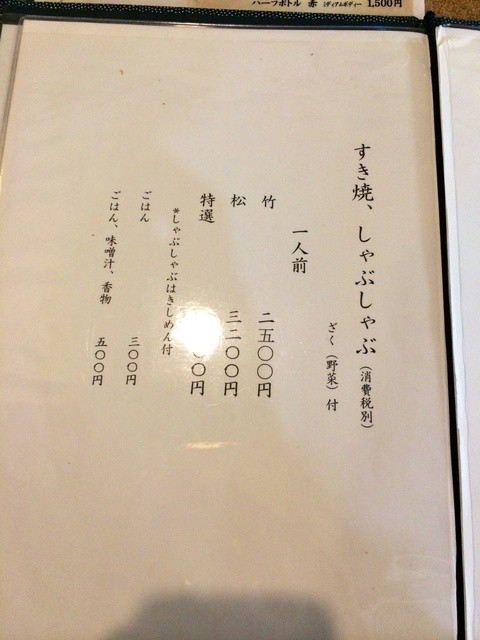 ハーフボトル 赤 ミディアムボディー 1,500円
すき焼、しゃぶしゃぶ(消費税別)
ざく(野菜)付
一人前
竹 二五〇〇円
松 三二〇〇円
特選 〇円
*しゃぶしゃぶはきしめん付
ごはん 三〇〇円
ごはん、味噌汁、香物 五〇〇円